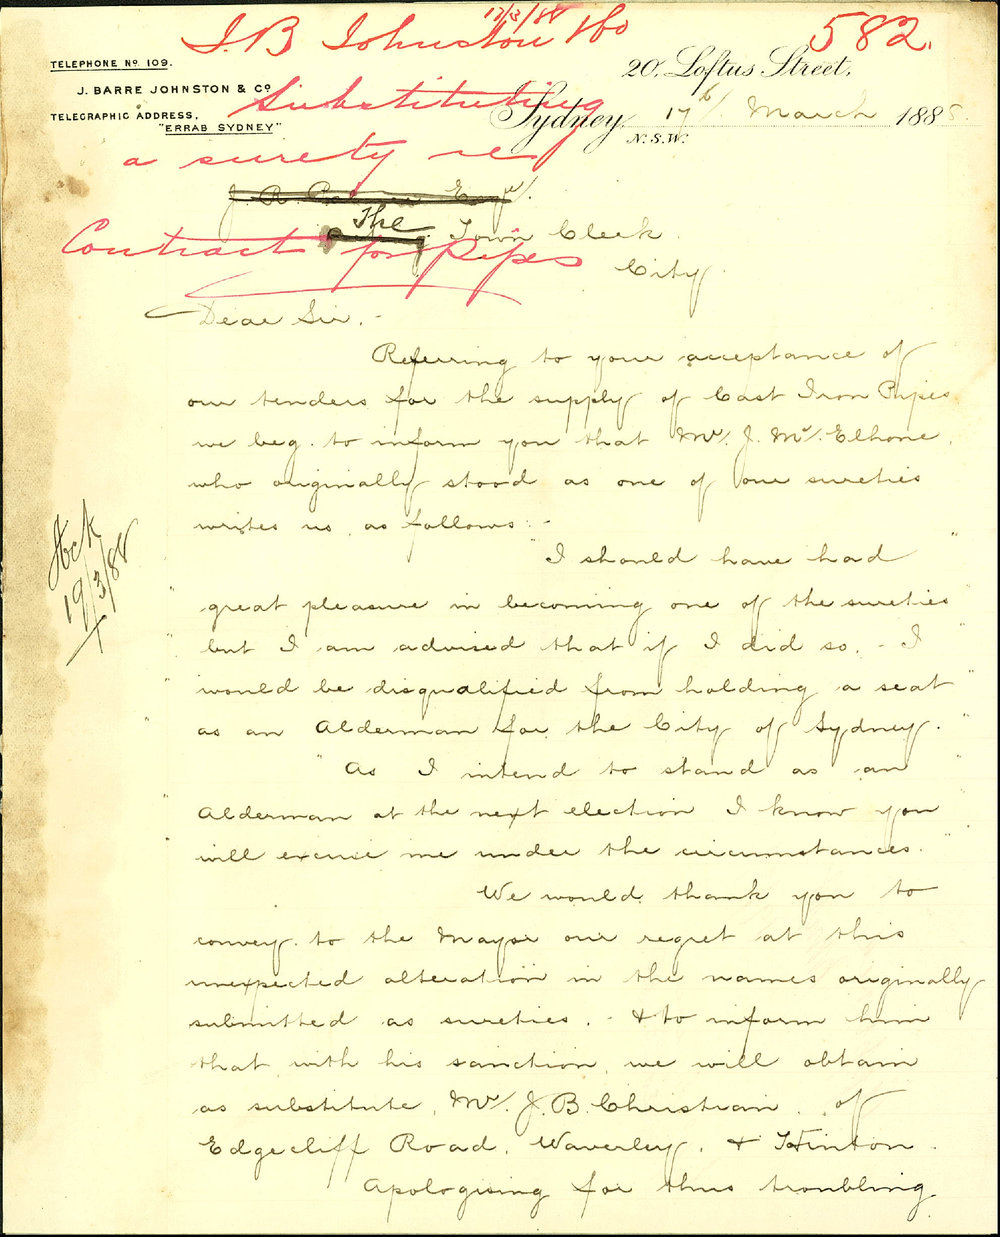 17/3/88
J. B Johnston & Co
582.
TELEPHONE No. 109.
J. BARRE JOHNSTON & Co
TELEGRAPHIC ADDRESS,
"ERRAB SYDNEY"
20, Loftus Street,
Sydney, 17th March 1888.
N.S.W.
Substituting
a surety re
Contract for Pipes
Esqre.
The Town Clerk.
City.
Dear Sir, -
Referring to your acceptance of
our tenders for the supply of Cast Iron Pipes
we beg to inform you that Mr. J. McElhone,
who originally stood as one of our sureties
writes us as follows: -
"I should have had
"great pleasure in becoming one of the sureties
"but I am advised that if I did so, - I
"would be disqualified from holding a seat
"as an Alderman for the City of Sydney."
"As I intend to stand as an
"Alderman at the next election I know you
"will excuse me under the circumstances."
We would thank you to
convey to the Mayor our regret at this
unexpected alteration in the names originally
submitted as sureties, - & to inform him
that with his sanction, we will obtain
as substitute, Mr. J. B. Christian, of
Edgecliff Road, Waverley, & Hinton.
Apologising for thus troubling
19/3/88